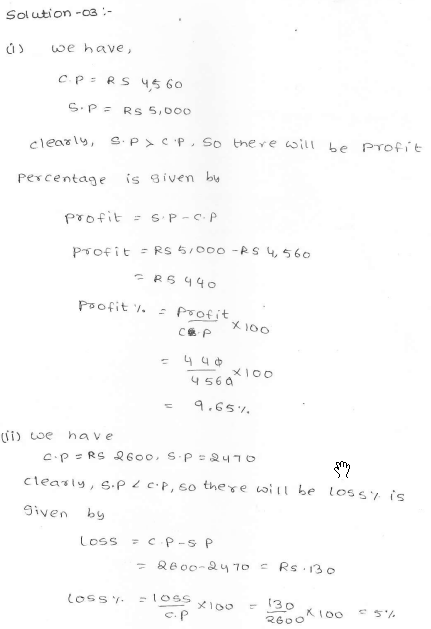 Solution-03:-
(i) we have,
C.P = RS 4,560
S.P = RS 5,000
clearly, S.P > C.P, So there will be Profit
Percentage is given by
Profit = S.P-C.P
Profit = RS 5,000 - RS 4,560
= RS 440
Profit % = Profit/C.P ×100
= 440/4560 ×100
= 9.65%
(ii) we have
C.P = RS 2600, S.P = 2470
Clearly, S.P < C.P, so there will be loss% is
given by
Loss = C.P-S P
= 2600-2470 = Rs.130
Loss % = loss/C.P ×100 = 130/2600 ×100 = 5%